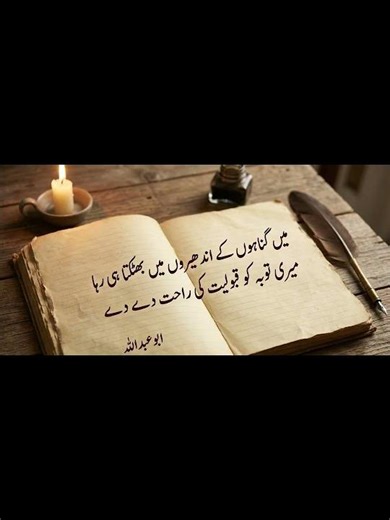 میں گناہوں کے اندھیروں میں بھٹکتا ہی رہا
میری توبہ کو قبولیت کی راحت دے دے
ابو عبداللہ